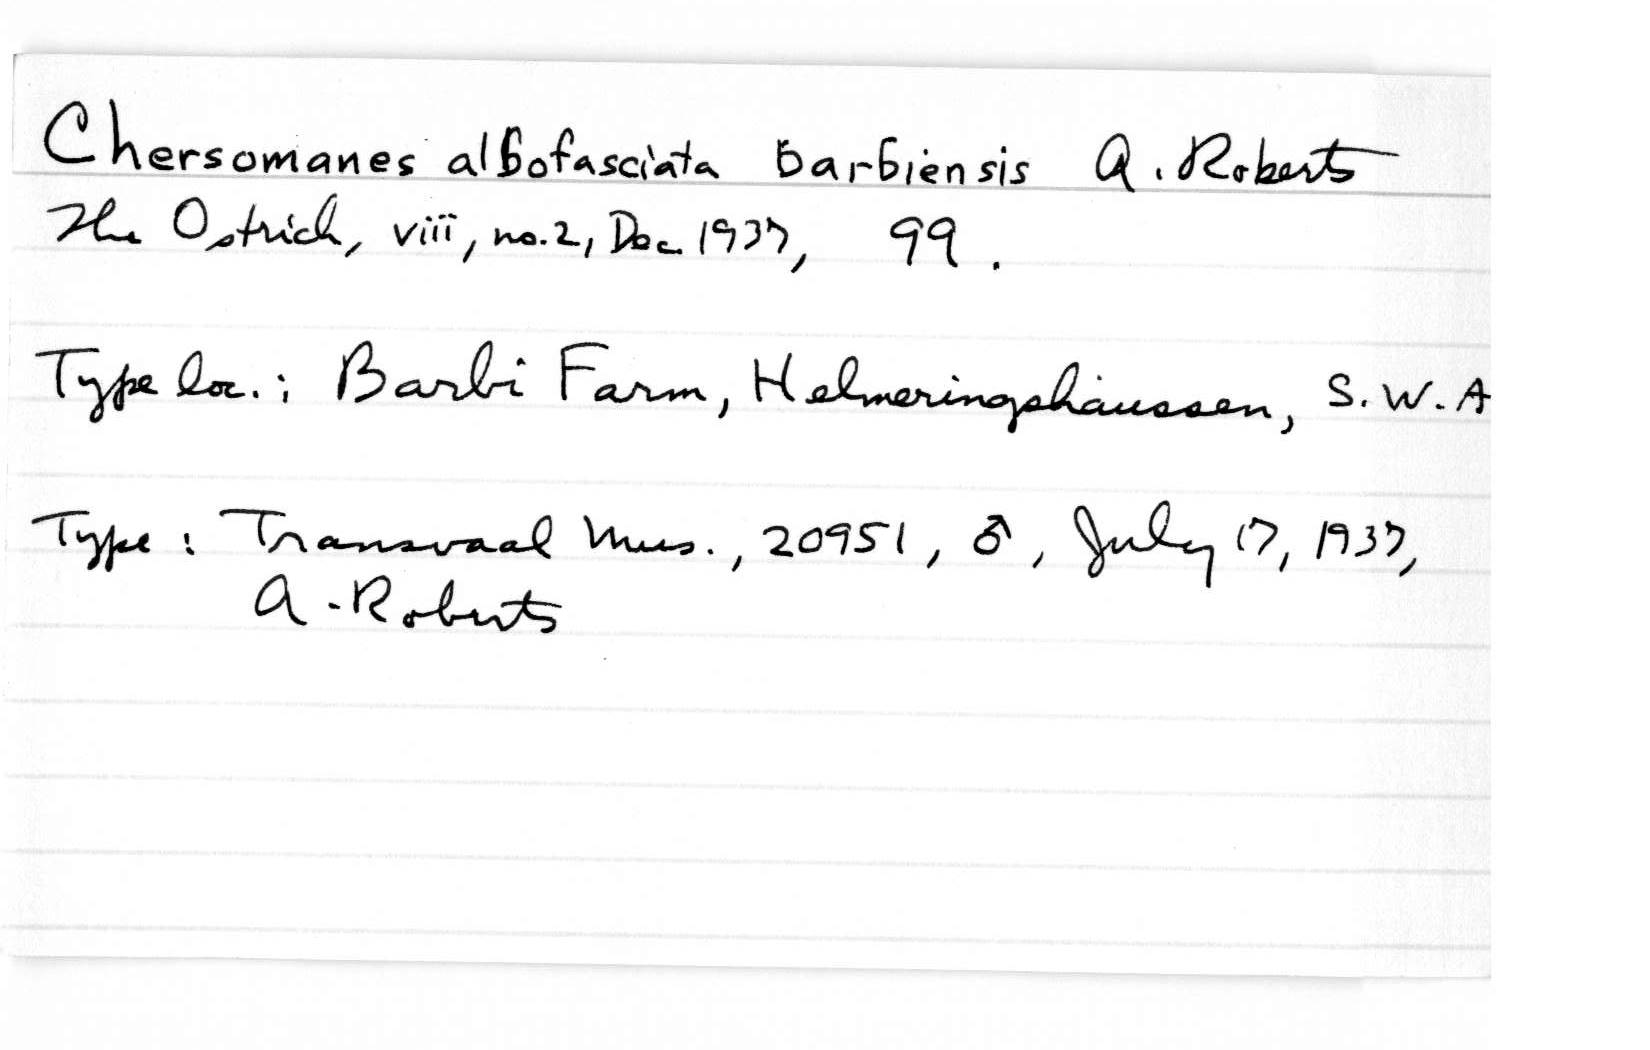 Chersomanes albofasciata barbiensis A. Roberts
The Ostrich, viii, no. 2, Dec. 1937, 99.
Type loc.: Barbi Farm, Helmeringshaussen, S.W.A
Type: Transvaal Mus., 20951, ♂, July 17, 1937,
A. Roberts